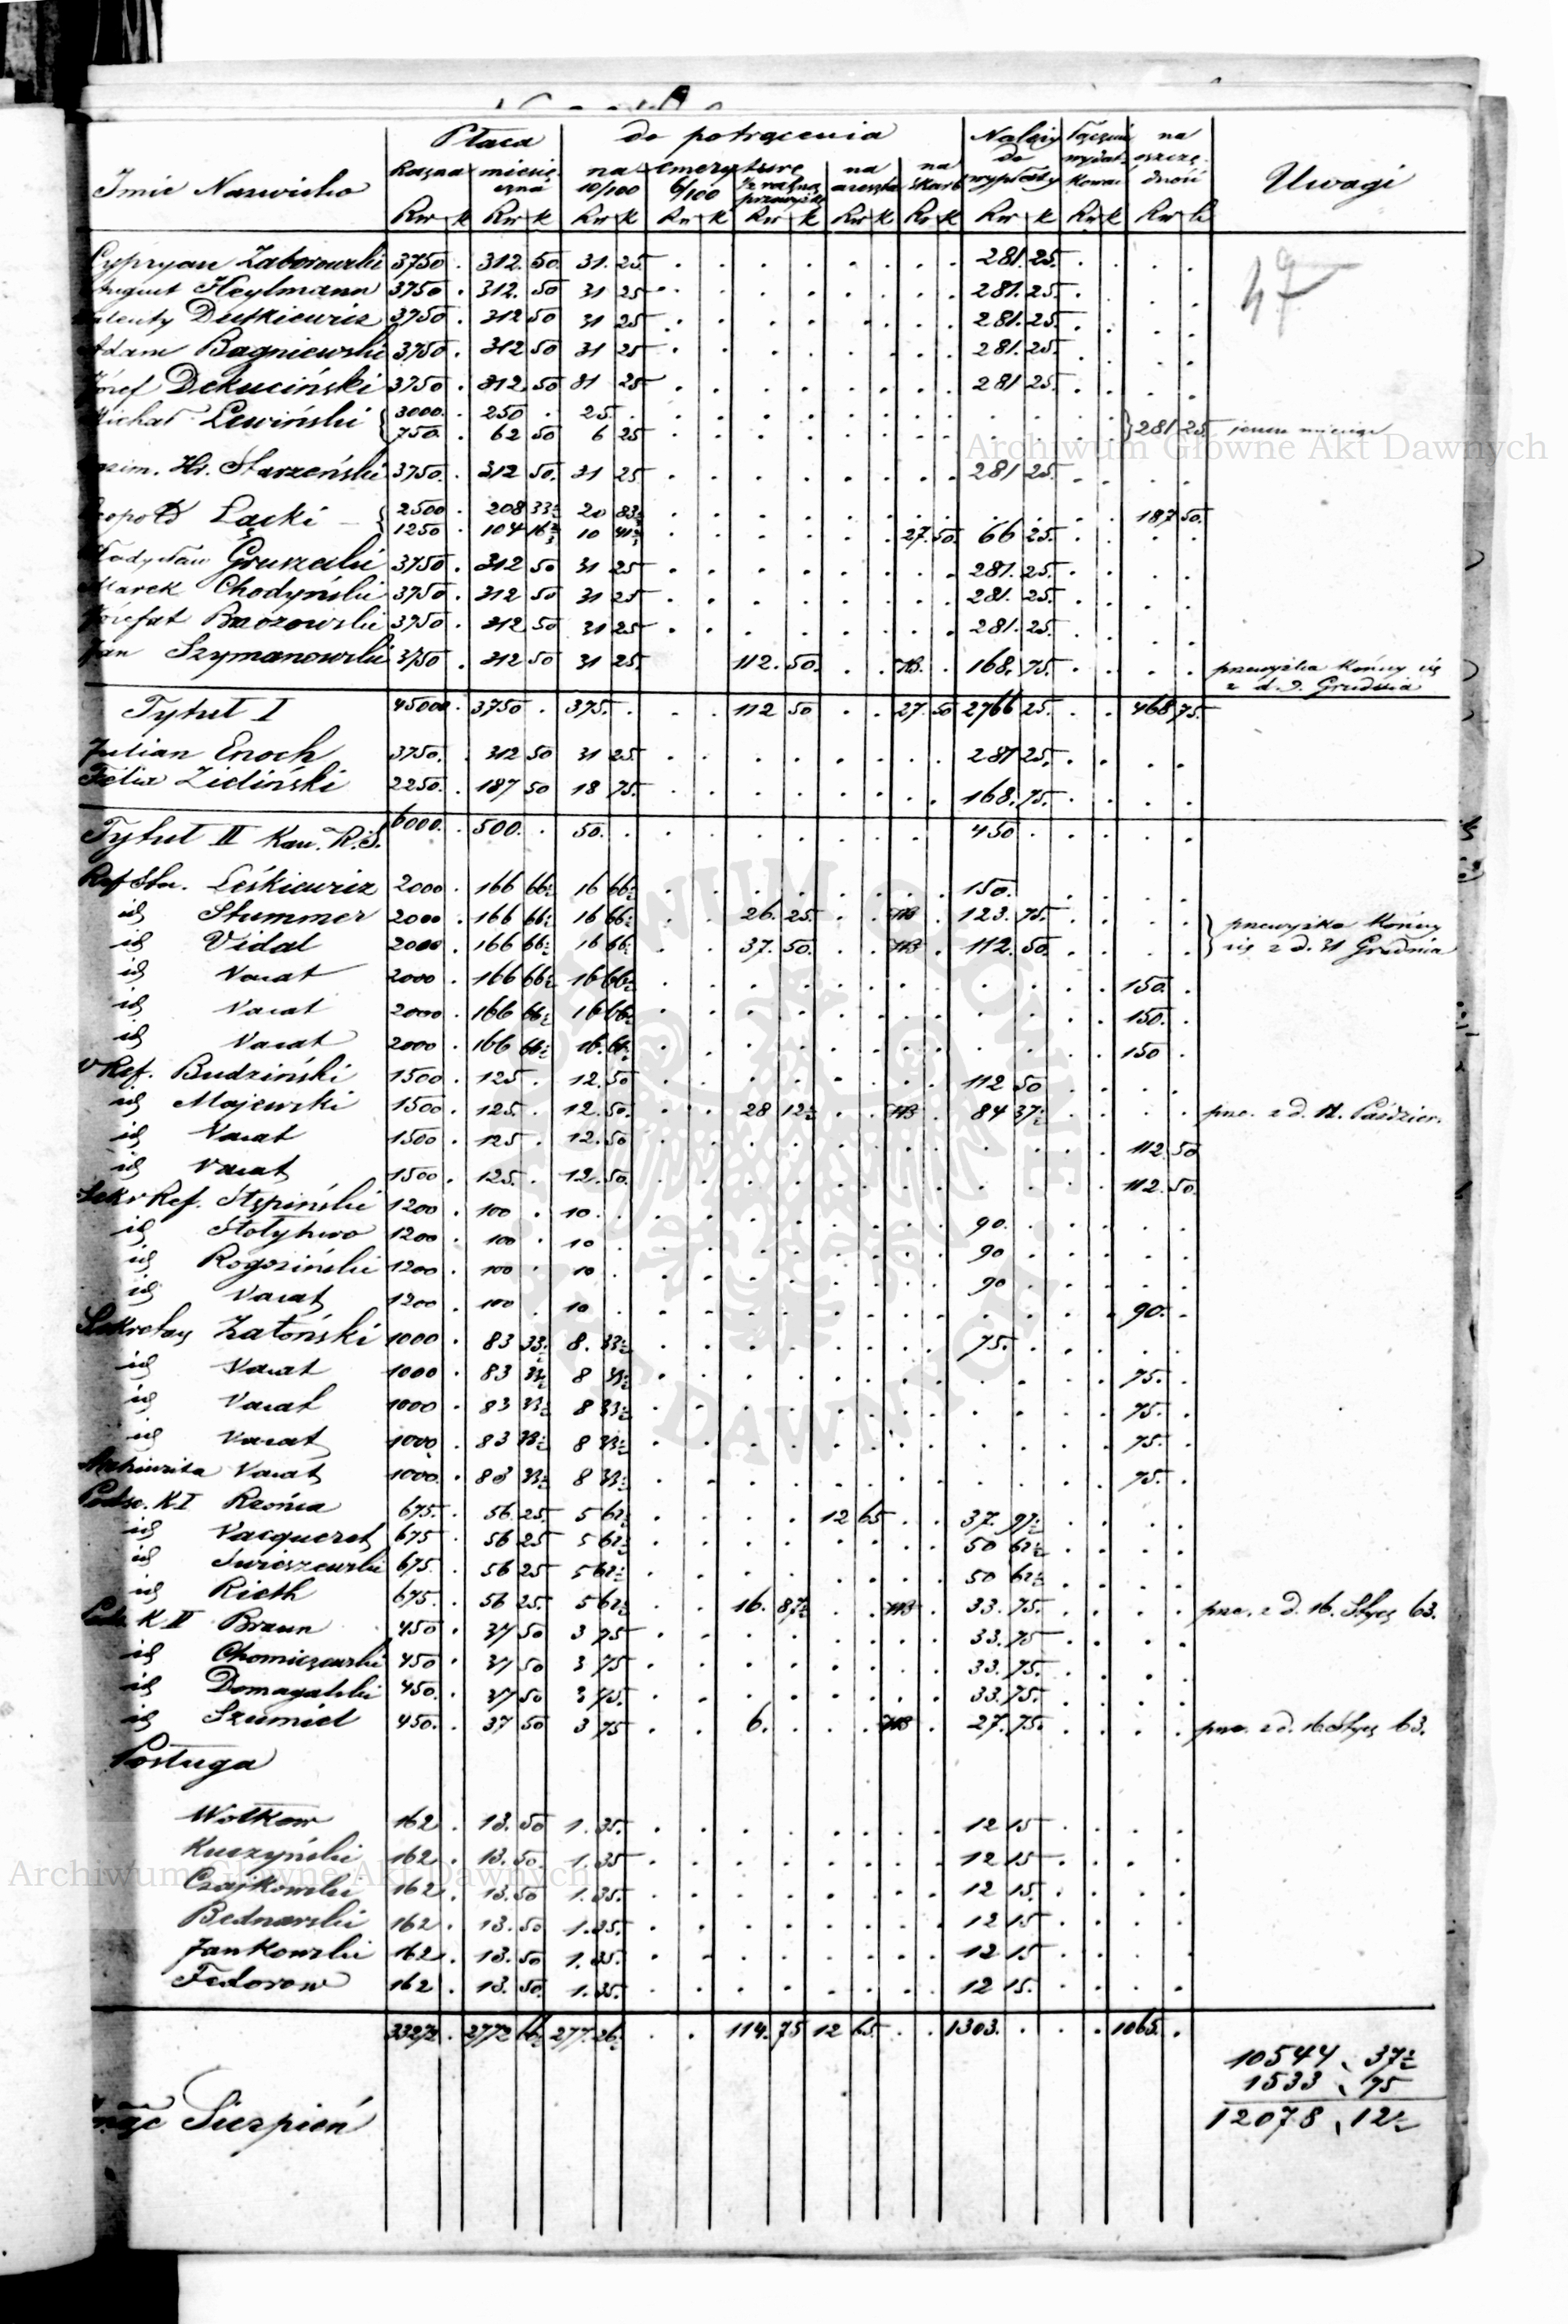 Imie Nazwisko Płaca do potrącenia Należy do wypłaty na oszczędność Uwagi
Roczna miesięczna na emeryturę na areszta na skarb
10/100 6/100
Rsr k Rsr k Rsr k Rsr k Rsr k Rsr k Rsr k Rsr k Rsr k Rsr k
47
Cypryan Zaborowski 3750 . 312. 50. 31. 25 281. 25.
August Heylmann 3750 . 312. 50 31 25 281. 25.
Dutkiewicz 3750 . 312 50 31 25 281. 25.
Adam Bagniewski 3750 . 312 50 31 25 281. 25.
Józef Dekuciński 3750 . 312. 50 31 25 281 25.
Michał Lewiński 3000. . 250 . 25. .
750. . 62 50 6 25 281 25
Archiwum Główne Akt Dawnych
Hr. Starzeński 3750. . 312 50. 31 25 281 25.
Leopold Łącki 2500 . 208 33 20 83 187 50.
1250 . 104 16 10 41 27. 50. 66 25.
Gruszecki 3750 . 312 50 31 25 281. 25.
Marek Chodyński 3750 . 312 50 31 25 281. 25.
Józefat Brzozowski 3750 . 312 50 31 25 281. 25.
Jan Szymanowski 3750 . 312 50 31 25. 112. 50. 168. 75. przewyżka kończy się
z d. 9. Grudnia
Tytuł I 45000. . 3750 . 375. . 112 50 27. 50 2766 25. 468 75.
Julian Enoch 3750. . 312 50 31 25. 281 25.
Felix Zieliński 2250. . 187 50 18 75. 168. 75.
Tytuł II Kan. R. S. 6000. . 500. . 50. . 450 .
Ref Stu. Leśkiewicz 2000 . 166 66½ 16 66½ 150.
id Stummer 2000 . 166 66½ 16 66½ 26. 25. 123. 75. przewyżka kończy
id Vidal 2000 . 166 66½ 16 66½ 37. 50. 112. 50. się z d. 31 Grudnia
id Vacat 2000 . 166 66½ 16 66½ 150. .
id Vacat 2000 . 166 66½ 16 66½ 150. .
id Vacat 2000 . 166 66½ 16. 66½ 150 .
V Ref. Budziński 1500 . 125 . 12. 50 112 50
id Majewski 1500 . 125. . 12. 50. 28 12½ 84 37½ Paździer.
id Vacat 1500 . 125 . 12. 50 112. 50
id Vacat 1500 . 125. . 12. 50. 112. 50.
Sekr Ref. Stępiński 1200 . 100 . 10 . 90. .
id Stołyhwo 1200 . 100 . 10 . 90 .
id Rogoziński 1200 . 100 . 10 . 90 .
id Vacat 1200 . 100 . 10 . 90. .
Sekretarz Zatoński 1000 . 83 33½ 8. 33½ 75. .
id Vacat 1000 . 83 33½ 8 33½ 75. .
id Vacat 1000 . 83 33½ 8 33½ 75. .
id Vacat 1000 . 83 33½ 8 33½ 75. .
Archiwista Vacat 1000. . 83 33½ 8 33½ 75. .
Podse. K I Rzońca 675. . 56. 25. 5 62½ 12 65 37. 97½
id Vacqueret 675 . 56 25 5 62½ 50 62½
id Swieszewski 675. . 56 25 5 62½ 50 62½
id Rieth 675. . 56 25. 5 62½ 16. 87½ 33. 75. prze. z d. 16. Stycz 63.
K II Braun 450 . 37 50 3 75 33. 75
id Chomiczewski 450 . 37 50 3 75 33. 75.
id Domagalski 450. . 37 50 3 75. 33. 75.
id Szumiel 450. . 37 50 3 75 6. . 27. 75. prze. z d. 16. Stycz 63.
Posługa
Wołkow 162 . 13. 50 1. 35. 12 15
Kuczyński 162 . 13. 50. 1. 35 12 15
Archiwum Główne Akt Dawnych
Czajkowski 162 . 13. 50 1. 35. 12 15.
Bednarski 162 . 13. 50 1. 35. 12 15
Jankowski 162 . 13. 50 1. 35. 12 15
Fedorow 162 . 13. 50. 1. 35. 12 15.
33272 . 2772 66½ 277. 26. 114. 75 12 65. 1303. . 1065. .
10544 . 37½
1533 . 75
12078 . 12½
Sierpień
ARCHIWUM GŁÓWNE AKT DAWNYCH